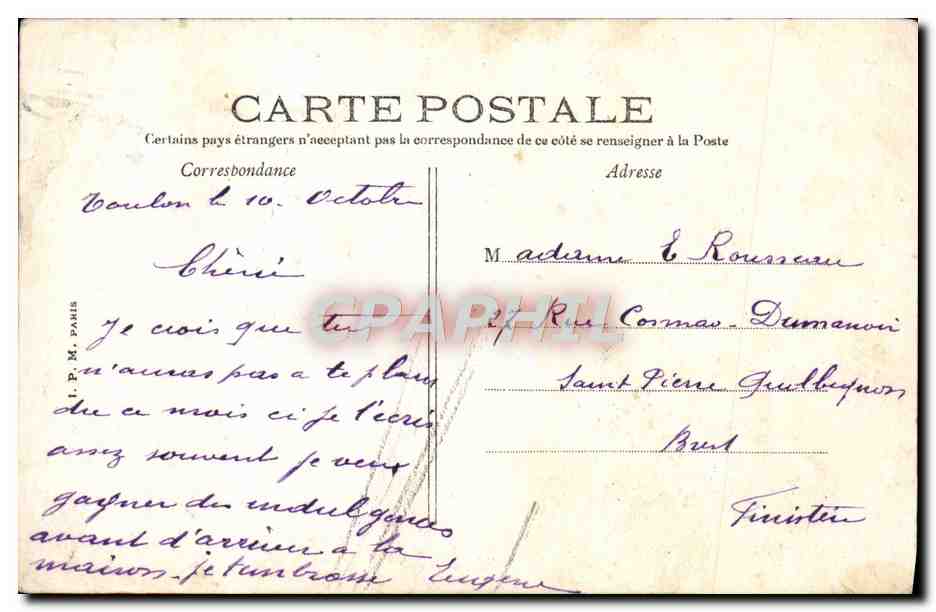 CARTE POSTALE
Certains pays étrangers n'acceptant pas la correspondance de ce côté se renseigner à la Poste
Correspondance
Toulon le 10. Octobre
Chérie
Je crois que tu
n'auras pas a te plain
dre ce mois ci je t'écris
assez souvent je veux
gagner des indulgences
avant d'arriver a la
maison. je t'embrasse Eugene
Adresse
Madame E Rousseau
27 Rue Cosmao-Dumanoir
Saint Pierre Quilbignon
Brest
Finistère
I. P. M. PARIS
CPAPHIL